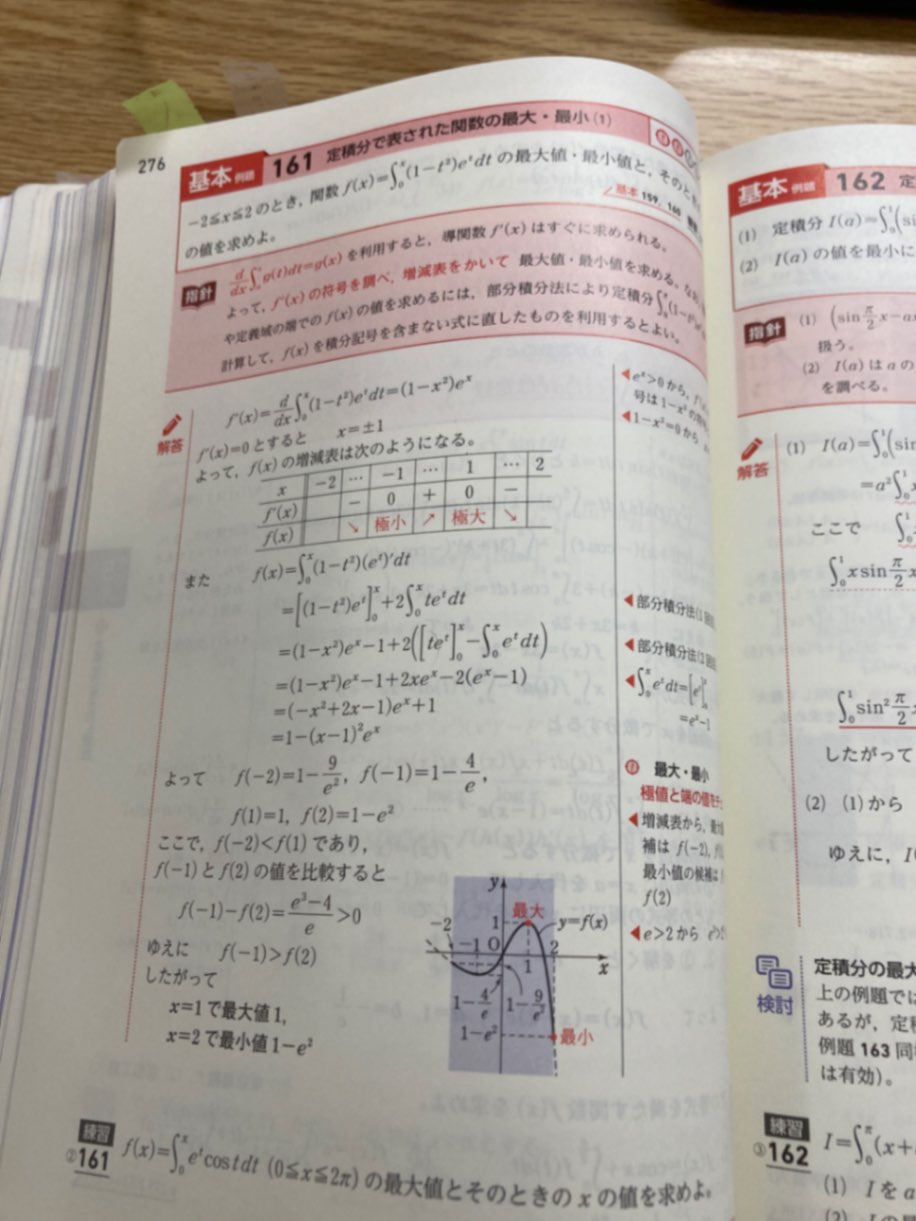 276
基本 例題 161 定積分で表された関数の最大・最小 (1)
-2≦x≦2 のとき,関数 f(x)=∫₀ˣ(1-t²)eᵗdt の最大値・最小値と,そのと
の値を求めよ。
基本 159, 160
指針
d/dx∫₀ˣg(t)dt=g(x) を利用すると,導関数 f'(x) はすぐに求められる。
よって,f'(x) の符号を調べ,増減表をかいて 最大値・最小値を求める。
や定義域の端での f(x) の値を求めるには,部分積分法により定積分∫₀ˣ(1-t²)
計算して,f(x) を積分記号を含まない式に直したものを利用するとよい。
解答
f'(x)=d/dx∫₀ˣ(1-t²)eᵗdt=(1-x²)eˣ
f'(x)=0 とすると x=±1
よって,f(x) の増減表は次のようになる。
x -2 … -1 … 1 … 2
f'(x) - 0 + 0 -
f(x) ↘ 極小 ↗ 極大 ↘
また f(x)=∫₀ˣ(1-t²)(eᵗ)'dt
=[(1-t²)eᵗ]₀ˣ+2∫₀ˣteᵗdt
=(1-x²)eˣ-1+2([teᵗ]₀ˣ-∫₀ˣeᵗdt)
=(1-x²)eˣ-1+2xeˣ-2(eˣ-1)
=(-x²+2x-1)eˣ+1
=1-(x-1)²eˣ
よって f(-2)=1-9/e², f(-1)=1-4/e,
f(1)=1, f(2)=1-e²
ここで,f(-2)<f(1) であり,
f(-1) と f(2) の値を比較すると
f(-1)-f(2)=(e³-4)/e>0
ゆえに f(-1)>f(2)
したがって
x=1 で最大値 1,
x=2 で最小値 1-e²
◀eˣ>0 から,
号は 1-x² の
◀1-x²=0 から
◀部分積分法(1
◀部分積分法(2
◀∫₀ˣeᵗdt=[eᵗ]₀ˣ
=eˣ-1
最大・最小
極値と端の値を
◀増減表から,
補は f(-2),
最小値の候補は
f(2)
◀e>2 から
y
最大
1
y=f(x)
-2
-1 O
1
2
x
1-4/e
1-9/e²
1-e²
最小
練習
②161 f(x)=∫₀ˣeᵗcos t dt (0≦x≦2π) の最大値とそのときの x の値を求めよ。
基本 例題 162 定
(1) 定積分 I(a)=∫₀¹(
(2) I(a) の値を最小に
指針
(1) (sin π/2 x-
扱う。
(2) I(a) は a の
を調べる。
解答
(1) I(a)=∫₀¹(sin
=a²∫₀¹
ここで ∫₀¹
∫₀¹x sin π/2
∫₀¹sin² π/2
したがって
(2) (1) から
ゆえに,
検討
定積分の最
上の例題では
あるが,定
例題 163 同
は有効)。
練習
③162 I=∫₀^π(x+
(1) I を a
(2) I の